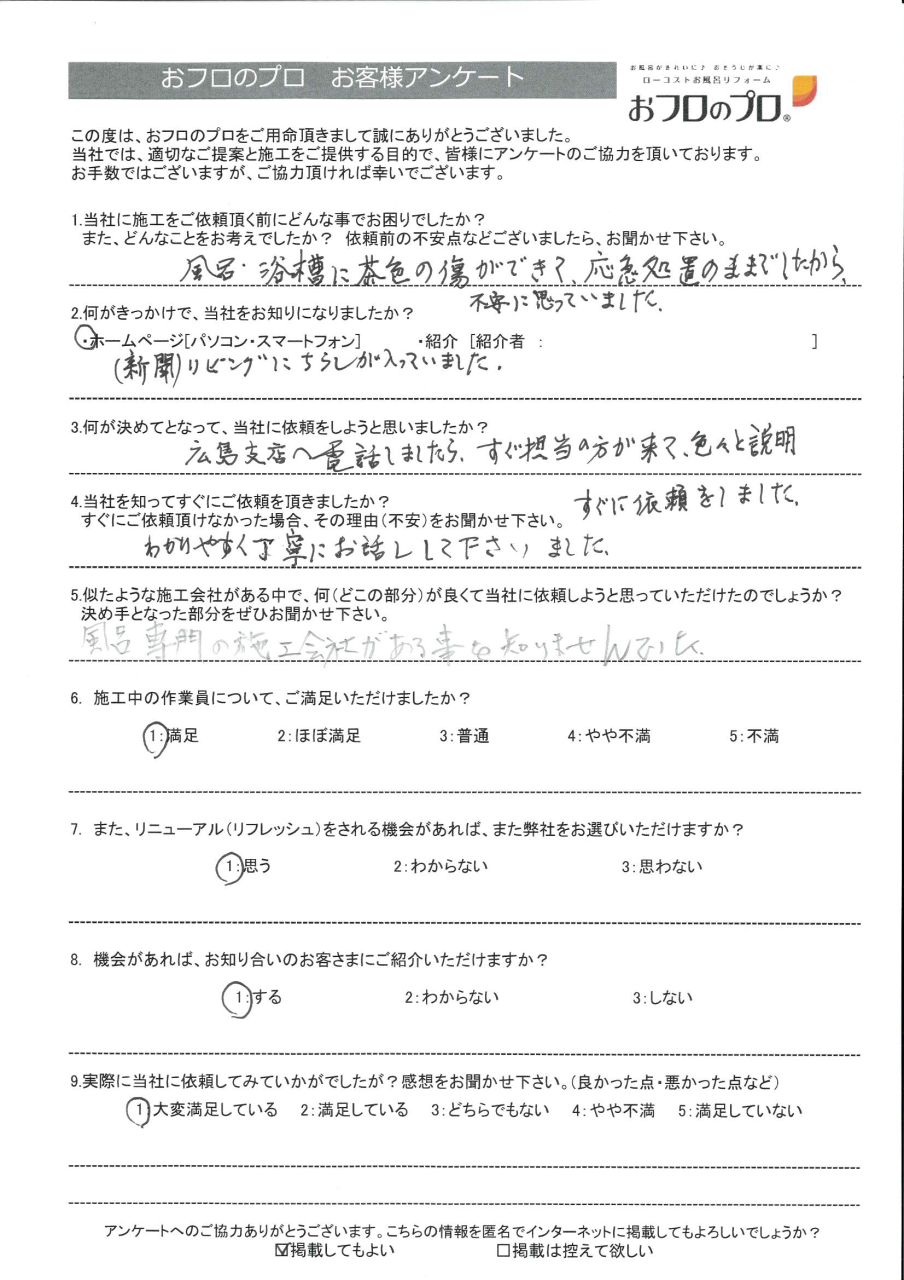 おフロのプロ　お客様アンケート
お風呂がきれいに♪ おそうじが楽に♪
ローコストお風呂リフォーム
おフロのプロ®
この度は、おフロのプロをご用命頂きまして誠にありがとうございました。
当社では、適切なご提案と施工をご提供する目的で、皆様にアンケートのご協力を頂いております。
お手数ではございますが、ご協力頂ければ幸いでございます。
1.当社に施工をご依頼頂く前にどんな事でお困りでしたか？
また、どんなことをお考えでしたか？ 依頼前の不安点などございましたら、お聞かせ下さい。
風呂・浴槽に茶色の傷ができて、応急処置のままでしたから、
不安に思っていました。
2.何がきっかけで、当社をお知りになりましたか？
・ホームページ[パソコン・スマートフォン]　・紹介 [紹介者 ： ]
(新聞)リビングにちらしが入っていました。
3.何が決めてとなって、当社に依頼をしようと思いましたか？
広島支店へ電話しましたら、すぐ担当の方が来て、色々と説明
4.当社を知ってすぐにご依頼を頂きましたか？
すぐに依頼をしました。
すぐにご依頼頂けなかった場合、その理由（不安）をお聞かせ下さい。
わかりやすく丁寧にお話しして下さいました。
5.似たような施工会社がある中で、何（どこの部分）が良くて当社に依頼しようと思っていただけたのでしょうか？
決め手となった部分をぜひお聞かせ下さい。
風呂専門の施工会社がある事を知りませんでした。
6. 施工中の作業員について、ご満足いただけましたか？
1：満足　2：ほぼ満足　3：普通　4：やや不満　5：不満
7. また、リニューアル（リフレッシュ）をされる機会があれば、また弊社をお選びいただけますか？
1：思う　2：わからない　3：思わない
8. 機会があれば、お知り合いのお客さまにご紹介いただけますか？
1：する　2：わからない　3：しない
9.実際に当社に依頼してみていかがでしたが？感想をお聞かせ下さい。（良かった点・悪かった点など）
1：大変満足している　2：満足している　3：どちらでもない　4：やや不満　5：満足していない
アンケートへのご協力ありがとうございます。こちらの情報を匿名でインターネットに掲載してもよろしいでしょうか？
☑掲載してもよい　□掲載は控えて欲しい